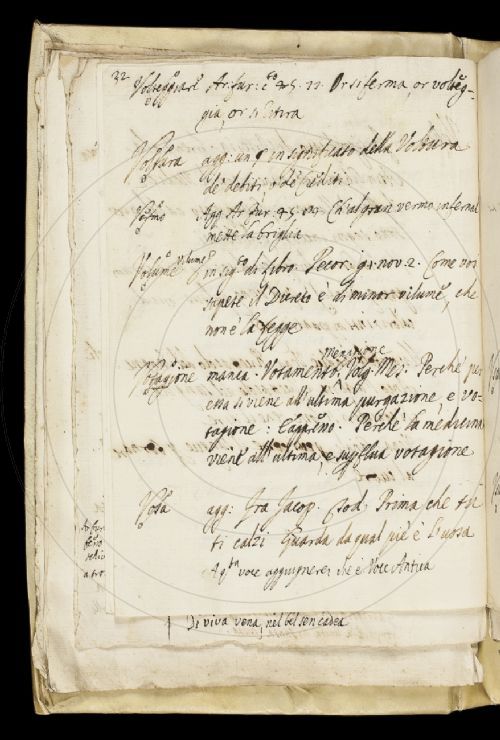 32 Volteggiare Ar: fur: c.to 45. 22. Or si ferma, or volteg-
gia, or si ritira
Voltura agg: un § in significato della Voltura
de' debiti, o de' crediti
Agg. Ar. fur. 45. Ch'al gran vermo infernal
mette la briglia
Volume in sig.to di libro. Pecor. g. nov. 2. Come voi
sapete il Decreto è di minor volume, che
non è la legge
Votagione manca. Votamento, menagione Volg. Mes. Perchè per
essa si viene all'ultima purgazione, e vo-
tagione: Perchè la medicina
viene all'ultima, e superflua votagione
Vosa agg: Fra Jacop. Tod. Prima che tu
ti calzi Guarda da qual piè è l'uosa
voce aggiugnerei che è Voce Antica
Di viva vena, nel bel sen cadea